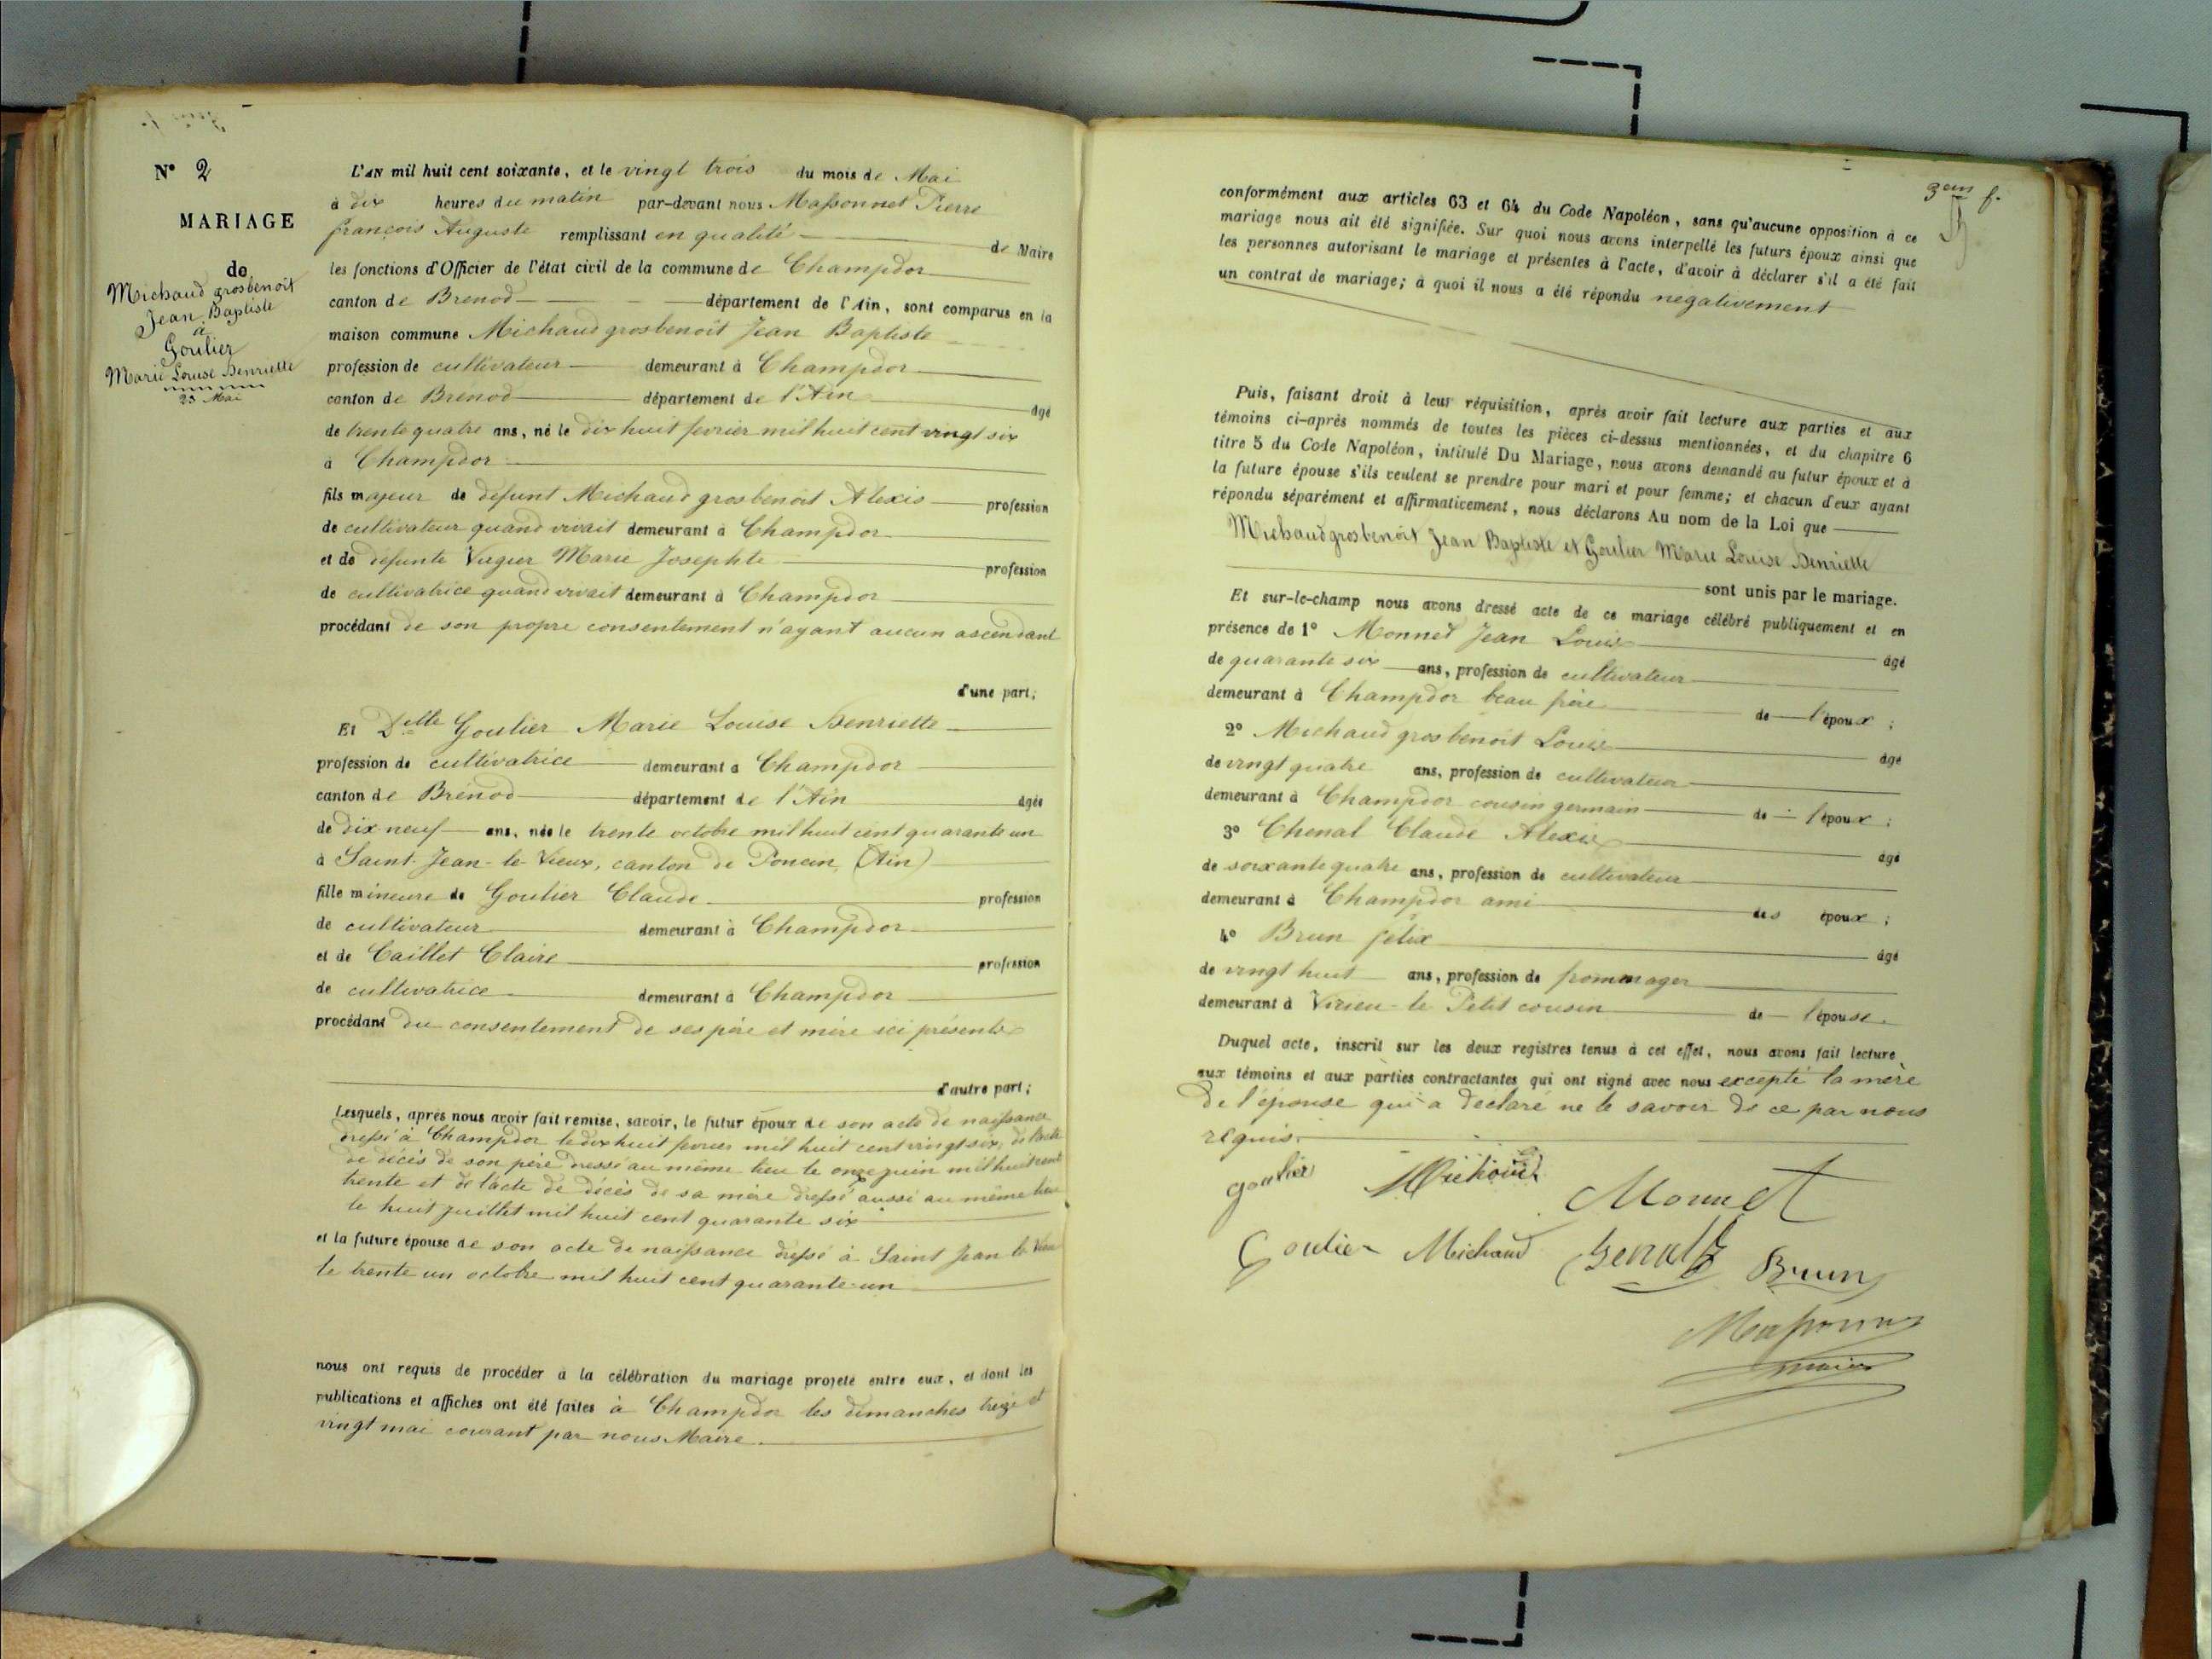 N° 2
MARIAGE
de
Michaud grosbenoit
Jean Baptiste
à
Goulier
Marie Louise Henriette
23 Mai
L'AN mil huit cent soixante, et le vingt trois du mois de Mai
à dix heures du matin par-devant nous Massonnet Pierre
françois Auguste remplissant en qualité de Maire
les fonctions d'Officier de l'état civil de la commune de Champdor
canton de Brénod département de l'Ain, sont comparus en la
maison commune Michaud grosbenoit Jean Baptiste
profession de cultivateur demeurant à Champdor
canton de Brénod département de l'Ain âgé
de trente quatre ans, né le dix huit fevrier mil huit cent vingt six
à Champdor
fils majeur de défunt Michaud grosbenoit Alexis profession
de cultivateur quand vivait demeurant à Champdor
et de défunte Marie Josephte profession
de cultivatrice quand vivait demeurant à Champdor
procédant de son propre consentement n'ayant aucun ascendant
d'une part;
Et Delle Goulier Marie Louise Henriette
profession de cultivatrice demeurant à Champdor
canton de Brénod département de l'Ain âgée
de dix neuf ans, née le trente octobre mil huit cent quarante un
à Saint-Jean-le-Vieux, canton de Poncin (Ain)
fille mineure de Goulier Claude profession
de cultivateur demeurant à Champdor
et de Caillet Claire profession
de cultivatrice demeurant à Champdor
procédant du consentement de ses père et mère ici présents
d'autre part;
Lesquels, après nous avoir fait remise, savoir, le futur époux de son acte de naissance
dressé à Champdor le dix huit fevrier mil huit cent vingt six, de l'acte
de décès de son père dressé au même lieu le onze juin mil huit cent
trente et de l'acte de décès de sa mère dressé aussi au même lieu
le huit juillet mil huit cent quarante six
et la future épouse de son acte de naissance dressé à Saint Jean le Vieux
le trente un octobre mil huit cent quarante-un
nous ont requis de procéder à la célébration du mariage projeté entre eux, et dont les
publications et affiches ont été faites à Champdor les dimanches treize et
vingt mai courant par nous Maire
3em f.
conformément aux articles 63 et 64 du Code Napoléon, sans qu'aucune opposition à ce
mariage nous ait été signifiée. Sur quoi nous avons interpellé les futurs époux ainsi que
les personnes autorisant le mariage et présentes à l'acte, d'avoir à déclarer s'il a été fait
un contrat de mariage; à quoi il nous a été répondu négativement
Puis, faisant droit à leur réquisition, après avoir fait lecture aux parties et aux
témoins ci-après nommés de toutes les pièces ci-dessus mentionnées, et du chapitre 6
titre 5 du Code Napoléon, intitulé Du Mariage, nous avons demandé au futur époux et à
la future épouse s'ils veulent se prendre pour mari et pour femme; et chacun d'eux ayant
répondu séparément et affirmativement, nous déclarons Au nom de la Loi que
Michaud grosbenoit Jean Baptiste et Goulier Marie Louise Henriette
sont unis par le mariage.
Et sur-le-champ nous avons dressé acte de ce mariage célébré publiquement et en
présence de 1° Monnet Jean Louis âgé
de quarante six ans, profession de cultivateur
demeurant à Champdor beau frère de l'époux;
2° Michaud grosbenoit Louis âgé
de vingt quatre ans, profession de cultivateur
demeurant à Champdor cousin germain de l'époux;
3° Chenal Claude Alexis âgé
de soixante quatre ans, profession de cultivateur
demeurant à Champdor ami des époux;
4° Brun félix âgé
de vingt huit ans, profession de frommager
demeurant à Virieu-le-Petit cousin de l'épouse.
Duquel acte, inscrit sur les deux registres tenus à cet effet, nous avons fait lecture
aux témoins et aux parties contractantes qui ont signé avec nous excepté la mère
de l'épouse qui a declaré ne le savoir de ce par nous
requis.
goulier Michoud Monnet
Goulier Michaud Brun
maire